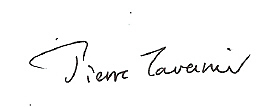 Pierre Tavernier